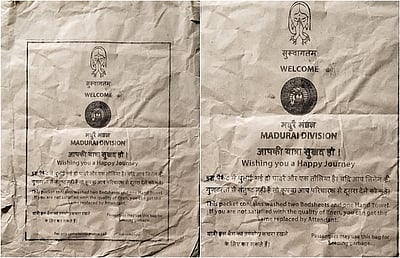 सुस्वागतम
WELCOME
मदुरै मंडल
MADURAI DIVISION
आपकी यात्रा सुखद हो !
Wishing you a Happy Journey
This packet contains washed two Bedsheets and one Hand Towel.
If you are not satisfied with the quality of linen, you can get the
same replaced by Attendant.
यात्री इस बैग का उपयोग कचरा रखने
के लिए कर सकते हैं।
Passengers may use this bag for
keeping garbage.
सुस्वागतम
WELCOME
मदुरै मंडल
MADURAI DIVISION
आपकी यात्रा सुखद हो !
Wishing you a Happy Journey
This packet contains washed two Bedsheets and one Hand Towel.
If you are not satisfied with the quality of linen, you can get the
same replaced by Attendant.
के लिए कर सकते हैं।
Passengers may use this bag for
keeping garbage.